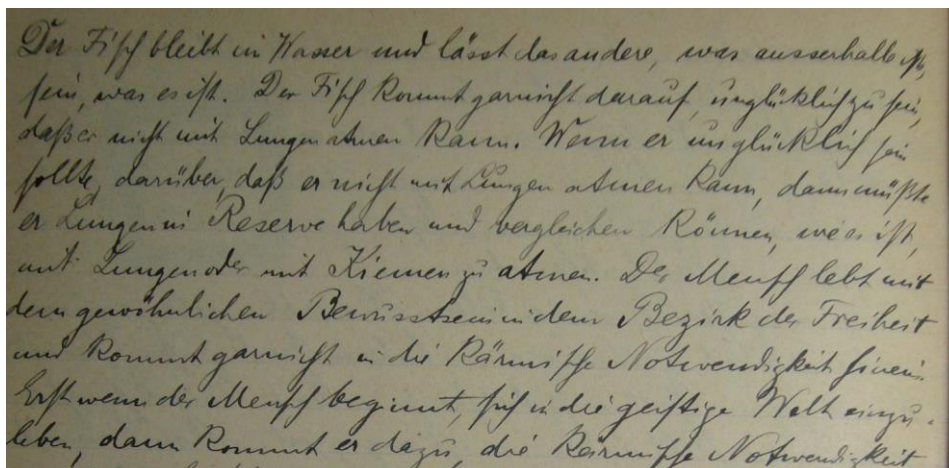 Der Fisch bleibt im Wasser und lässt das andere, was ausserhalb ist,
sein, was es ist. Der Fisch kommt garnicht darauf, unglücklich zu sein,
daß er nicht mit Lungen atmen kann. Wenn er unglücklich sein
sollte, darüber, daß er nicht mit Lungen atmen kann, dann müßte
er Lungen in Reserve haben und vergleichen können, wie es ist,
mit Lungen oder mit Kiemen zu atmen. Der Mensch lebt mit
dem gewöhnlichen Bewusstsein in dem Bezirk der Freiheit
und kommt garnicht in die karmische Notwendigkeit hinein.
Erst wenn der Mensch beginnt, sich in die geistige Welt einzu-
leben, dann kommt er dazu, die karmische Notwendigkeit